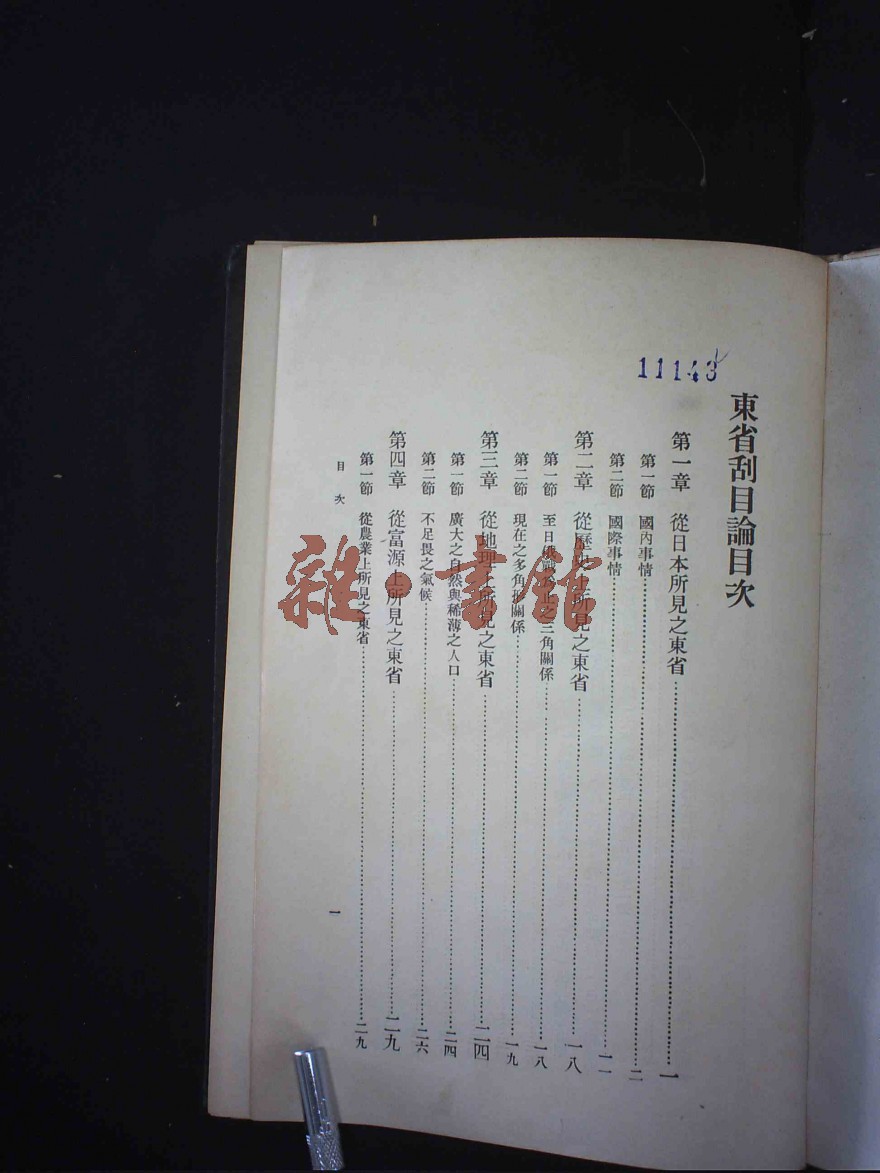 11143
東省刮目論目次
第一章 從日本所見之東省……一
第一節 國內事情……二
第二節 國際事情……一一
第二章 從歷史上所見之東省……一八
第一節 至日俄戰爲止之三角關係……一八
第二節 現在之多角形關係……一九
第三章 從地理上所見之東省……二四
第一節 廣大之自然與稀薄之人口……二四
第二節 不足畏之氣候……二六
第四章 從富源上所見之東省……二九
第一節 從農業上所見之東省……二九
目次
一
雜·書館